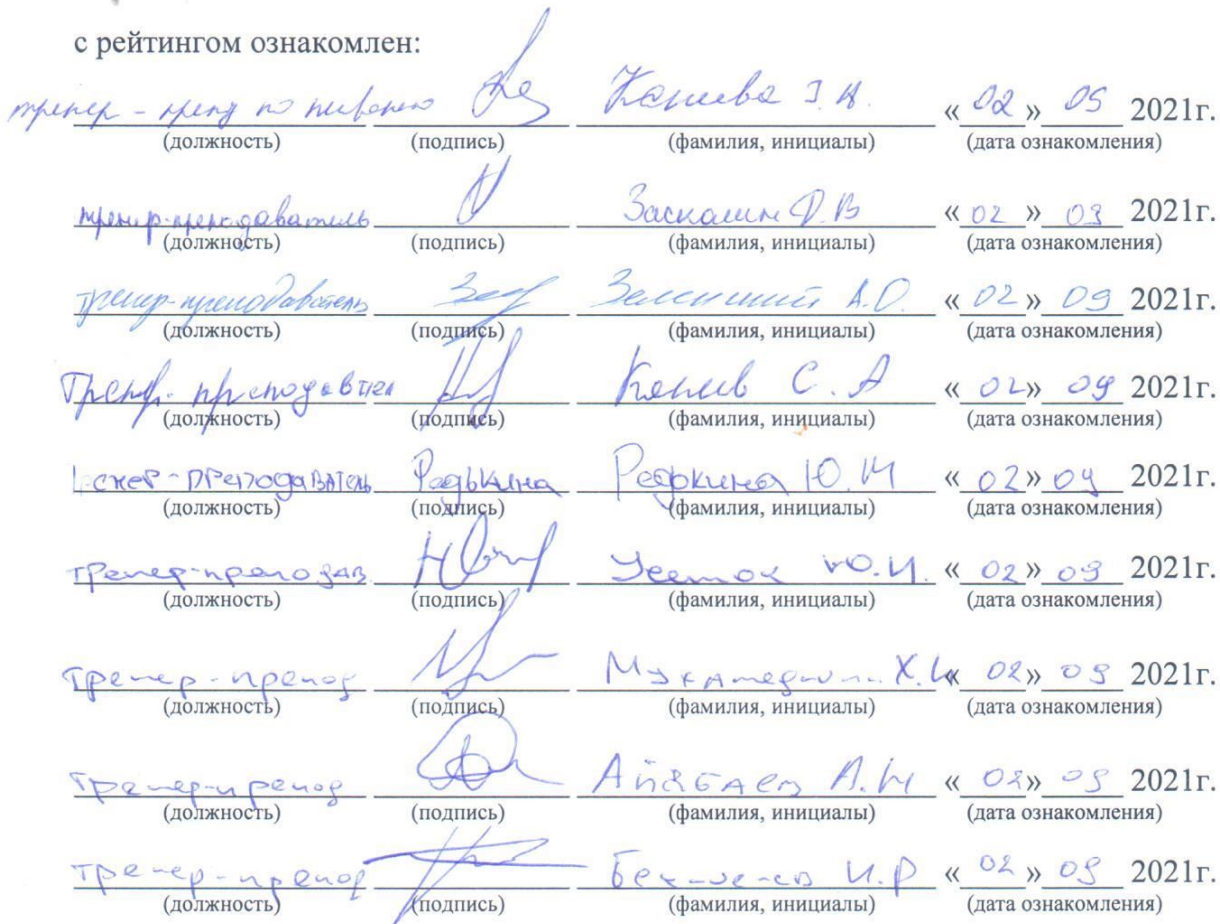 с рейтингом ознакомлен:
тренер-препод по плаванию Канева « 02 » 09 2021г.
(должность) (подпись) (фамилия, инициалы) (дата ознакомления)
тренер-преподаватель Заскалин Д.В « 02 » 09 2021г.
(должность) (подпись) (фамилия, инициалы) (дата ознакомления)
тренер-преподаватель А.О. « 02 » 09 2021г.
(должность) (подпись) (фамилия, инициалы) (дата ознакомления)
Тренер-преподавтел Канев С.А « 02 » 09 2021г.
(должность) (подпись) (фамилия, инициалы) (дата ознакомления)
преподаватель Редькина Редькина Ю.М « 02 » 09 2021г.
(должность) (подпись) (фамилия, инициалы) (дата ознакомления)
тренер-преподав. Ю.И. « 02 » 09 2021г.
(должность) (подпись) (фамилия, инициалы) (дата ознакомления)
тренер-препод « 02 » 09 2021г.
(должность) (подпись) (фамилия, инициалы) (дата ознакомления)
тренер-препод « 02 » 09 2021г.
(должность) (подпись) (фамилия, инициалы) (дата ознакомления)
тренер-препод И.Р « 02 » 09 2021г.
(должность) (подпись) (фамилия, инициалы) (дата ознакомления)